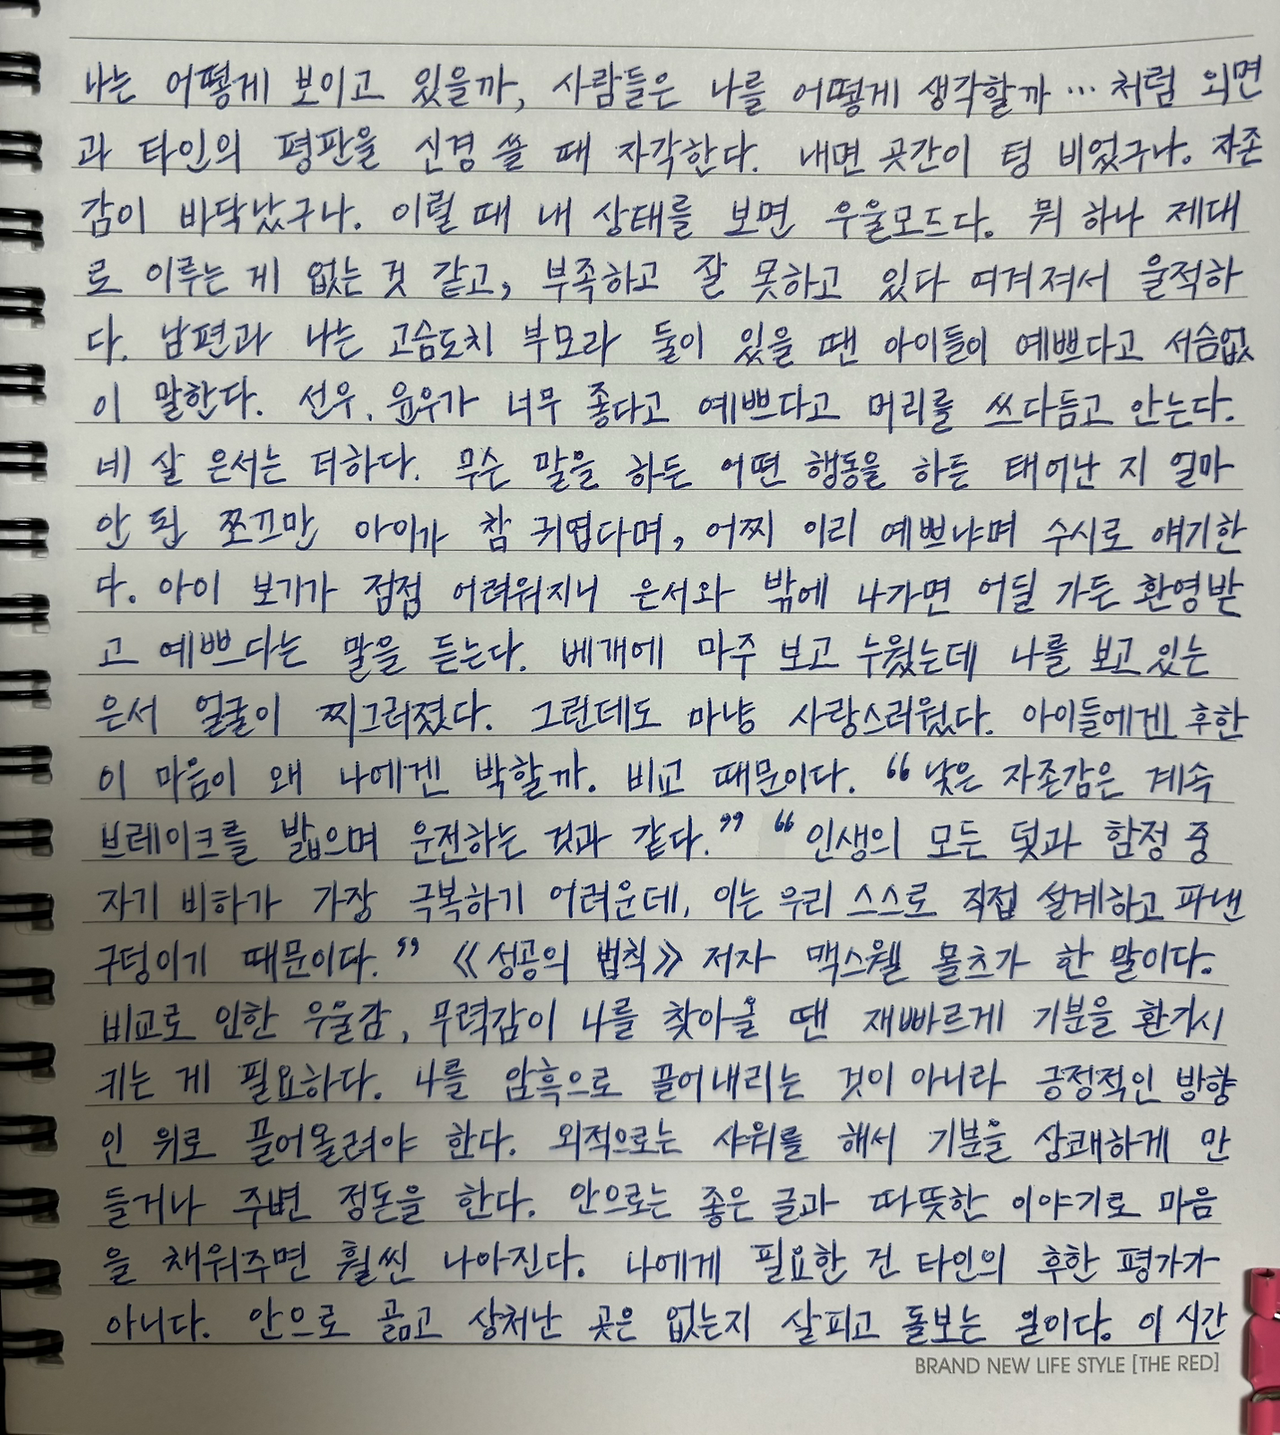 나는 어떻게 보이고 있을까, 사람들은 나를 어떻게 생각할까… 처럼 외면
과 타인의 평판을 신경 쓸 때 자각한다. 내면 곳간이 텅 비었구나. 자존
감이 바닥났구나. 이럴 때 내 상태를 보면 우울모드다. 뭐 하나 제대
로 이루는 게 없는 것 같고, 부족하고 잘 못하고 있다 여겨져서 울적하
다. 남편과 나는 고슴도치 부모라 둘이 있을 땐 아이들이 예쁘다고 서슴없
이 말한다. 선우, 윤우가 너무 좋다고 예쁘다고 머리를 쓰다듬고 안는다.
네 살 은서는 더하다. 무슨 말을 하든 어떤 행동을 하든 태어난 지 얼마
안 된 쪼끄만 아이가 참 귀엽다며, 어찌 이리 예쁘냐며 수시로 얘기한
다. 아이 보기가 점점 어려워지니 은서와 밖에 나가면 어딜 가든 환영받
고 예쁘다는 말을 듣는다. 베개에 마주 보고 누웠는데 나를 보고 있는
은서 얼굴이 찌그러졌다. 그런데도 마냥 사랑스러웠다. 아이들에겐 후한
이 마음이 왜 나에겐 박할까. 비교 때문이다. “낮은 자존감은 계속
브레이크를 밟으며 운전하는 것과 같다.” “인생의 모든 덫과 함정 중
자기 비하가 가장 극복하기 어려운데, 이는 우리 스스로 직접 설계하고 파낸
구덩이기 때문이다.” 《성공의 법칙》 저자 맥스웰 몰츠가 한 말이다.
비교로 인한 우울감, 무력감이 나를 찾아올 땐 재빠르게 기분을 환기시
키는 게 필요하다. 나를 암흑으로 끌어내리는 것이 아니라 긍정적인 방향
인 위로 끌어올려야 한다. 외적으로는 샤워를 해서 기분을 상쾌하게 만
들거나 주변 정돈을 한다. 안으로는 좋은 글과 따뜻한 이야기로 마음
을 채워주면 훨씬 나아진다. 나에게 필요한 건 타인의 후한 평가가
아니다. 안으로 곪고 상처난 곳은 없는지 살피고 돌보는 일이다. 이 시간
BRAND NEW LIFE STYLE [THE RED]